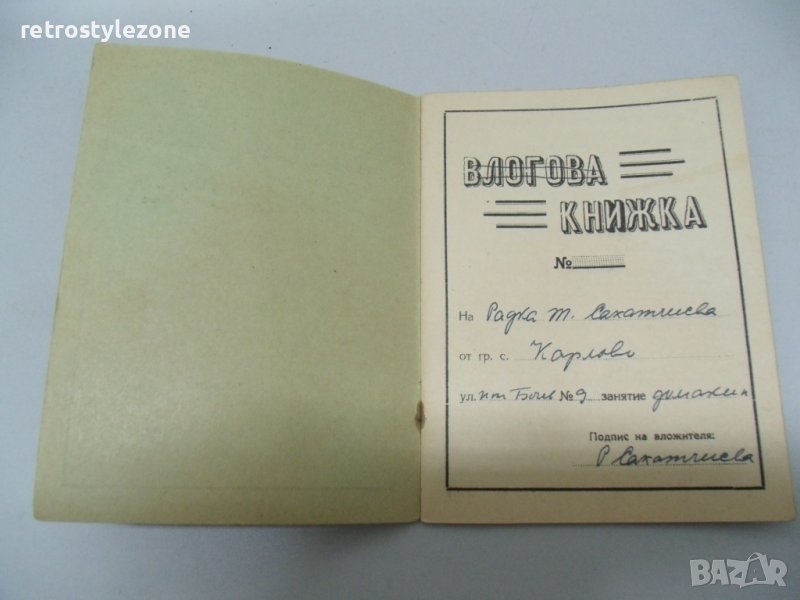 retrostylezone
ВЛОГОВА
КНИЖКА
№
На Радка т. Сахатчиева
от гр. с. Карлово
ул. № 9 занятие домакин
Подпис на вложителя:
Р Сахатчиева
BAZAR